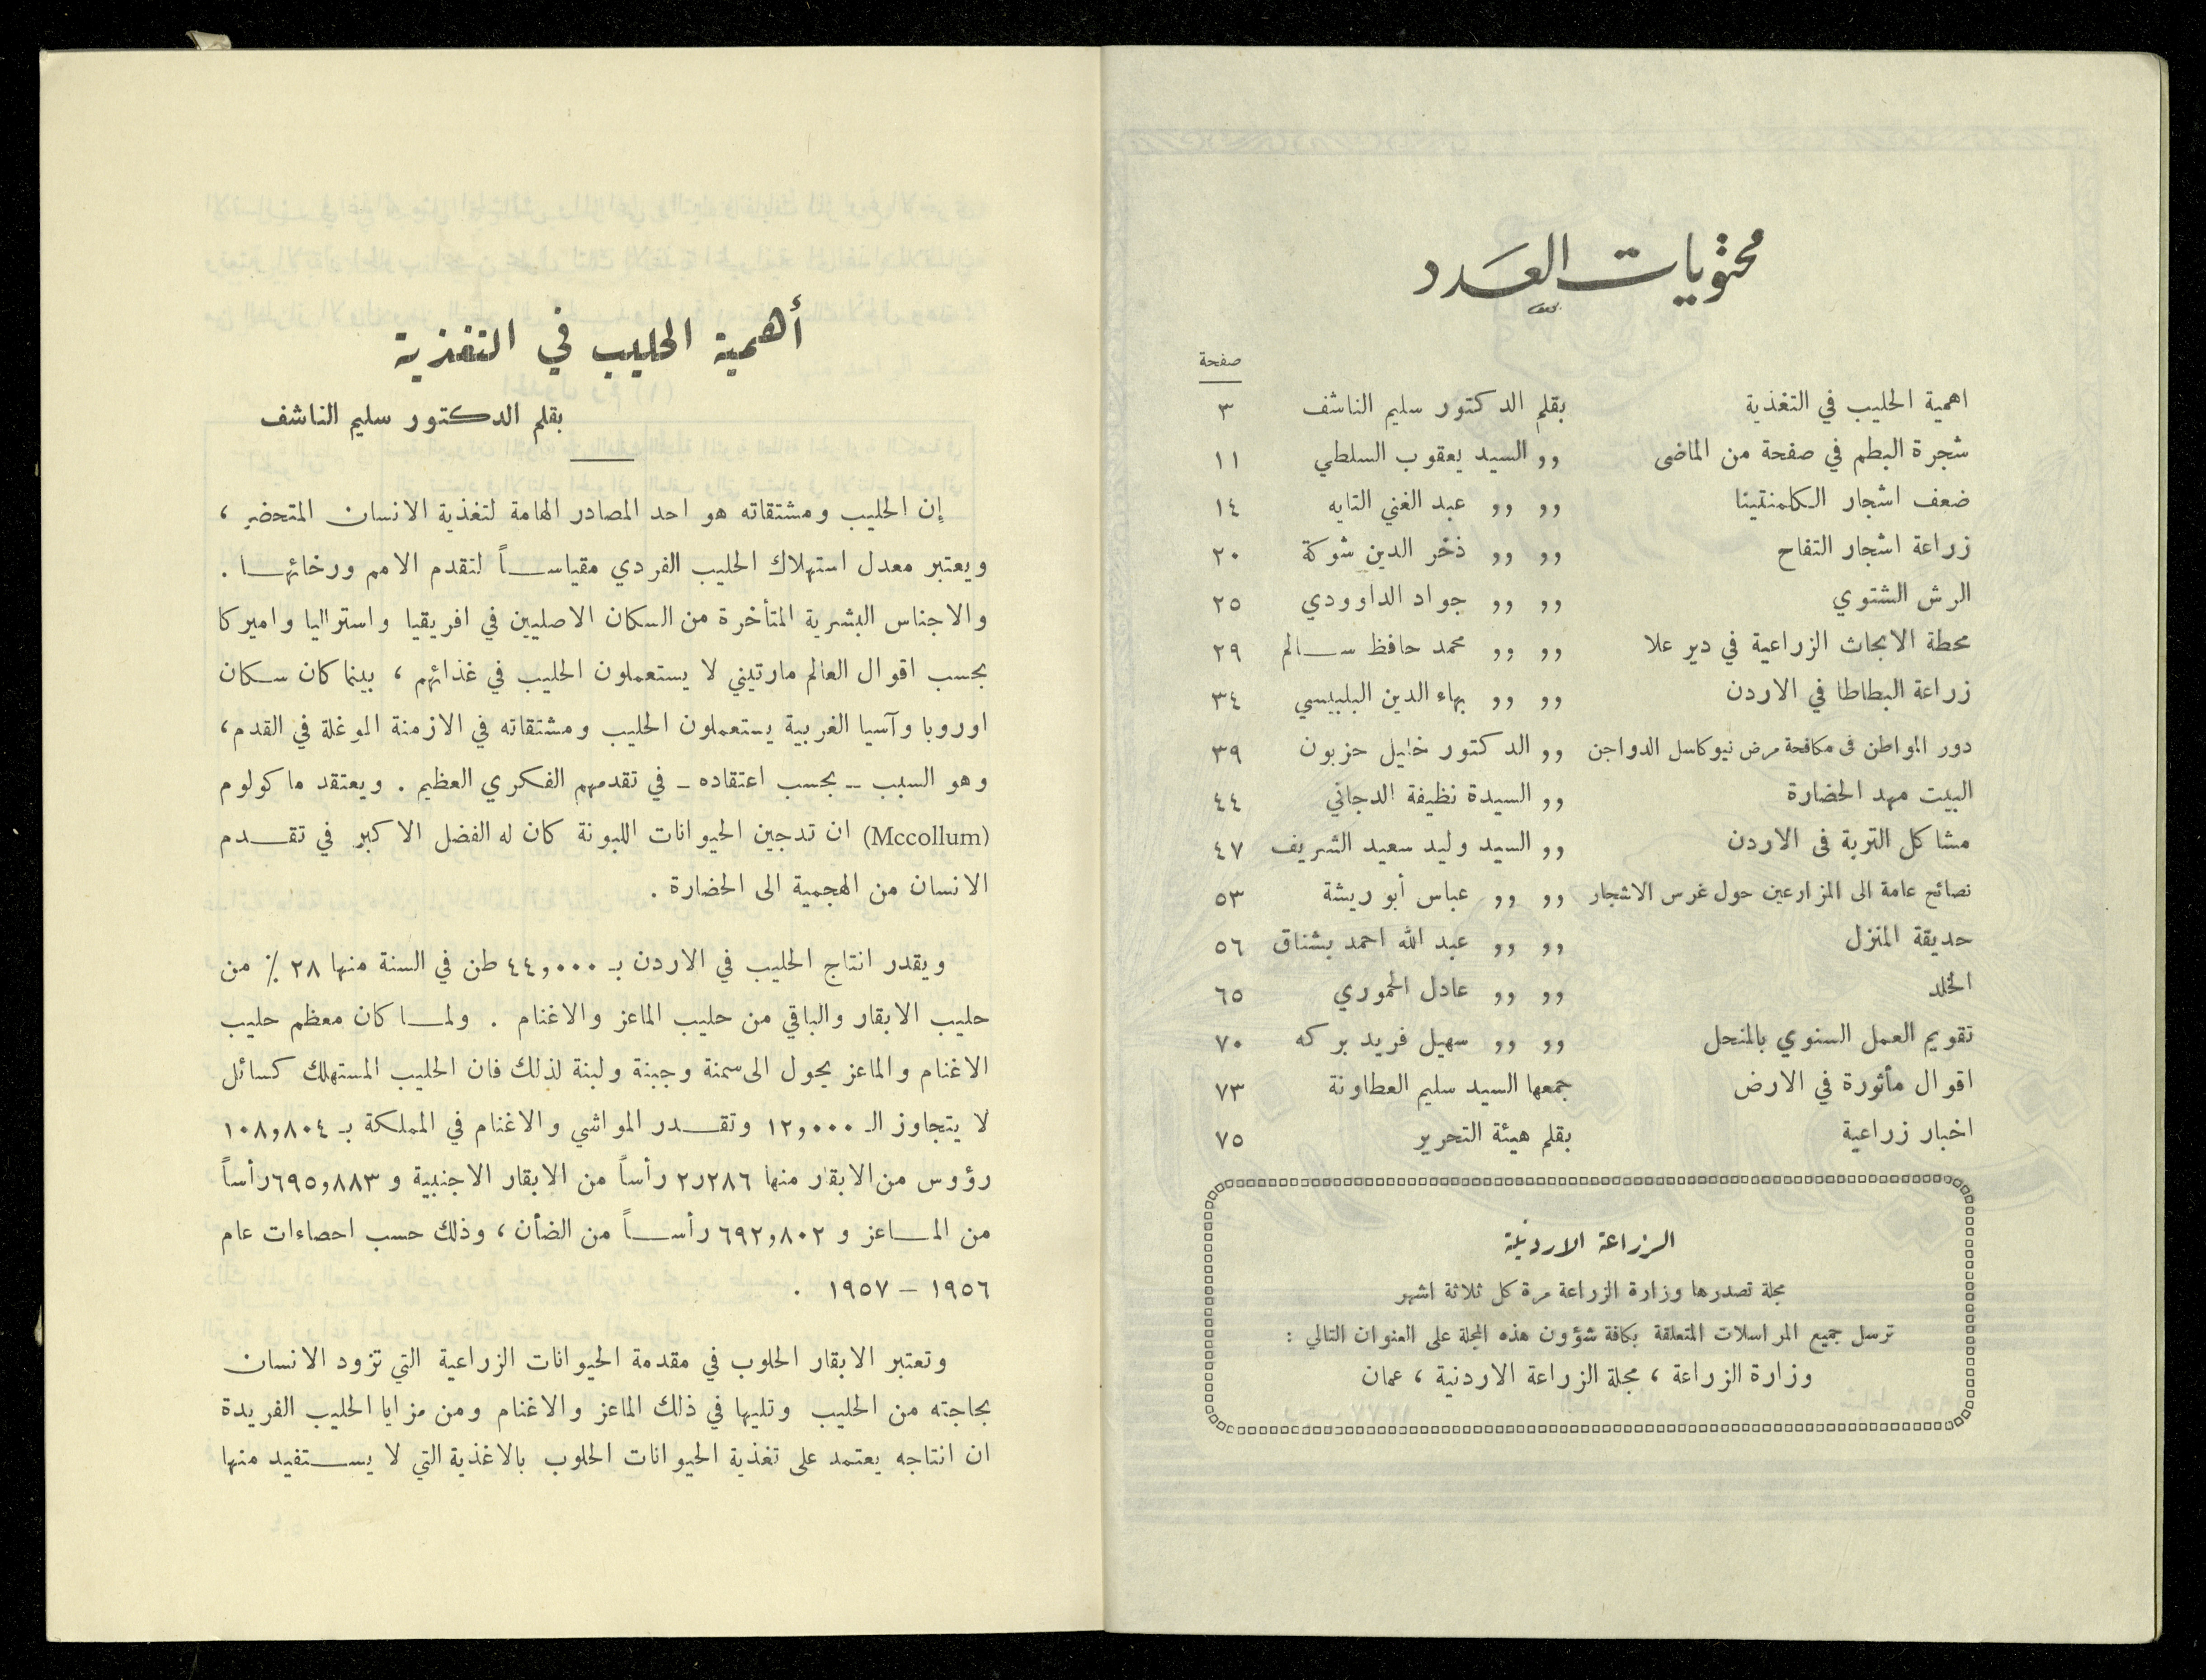 محتويات العدد
صفحة
اهمية الحليب في التغذية بقلم الدكتور سليم الناشف ٣
شجرة البطم في صفحة من الماضى ,, السيد يعقوب السلطي ١١
ضعف اشجار الكلمنتينا ,, ,, عبد الغني التايه ١٤
زراعة اشجار التفاح ,, ,, ذخر الدين شوكة ٢٠
الرش الشتوي ,, ,, جواد الداوودي ٢٥
محطة الابحاث الزراعية في دير علا ,, ,, محمد حافظ سالم ٢٩
زراعة البطاطا في الاردن ,, ,, بهاء الدين البلبيسي ٣٤
دور المواطن فى مكافحة مرض نيوكاسل الدواجن ,, الدكتور خليل حزبون ٣٩
البيت مهد الحضارة ,, السيدة نظيفة الدجاني ٤٤
مشاكل التربة فى الاردن ,, السيد وليد سعيد الشريف ٤٧
نصائح عامة الى المزارعين حول غرس الاشجار ,, ,, عباس أبو ريشة ٥٣
حديقة المنزل ,, ,, عبد الله احمد بشناق ٥٦
الخلد ,, ,, عادل الحموري ٦٥
تقويم العمل السنوي بالمنحل ,, ,, سهيل فريد بركه ٧٠
اقوال مأثورة في الارض جمعها السيد سليم العطاونة ٧٣
اخبار زراعية بقلم هيئة التحرير ٧٥
الزراعة الاردنية
مجلة تصدرها وزارة الزراعة مرة كل ثلاثة اشهر
ترسل جميع المراسلات المتعلقة بكافة شؤون هذه المجلة على العنوان التالي :
وزارة الزراعة ، مجلة الزراعة الاردنية ، عمان
أهمية الحليب في التغذية
بقلم الدكتور سليم الناشف
إن الحليب ومشتقاته هو احد المصادر الهامة لتغذية الانسان المتحضر ،
ويعتبر معدل استهلاك الحليب الفردي مقياساً لتقدم الامم ورخائها .
والاجناس البشرية المتأخرة من السكان الاصليين في افريقيا واستراليا واميركا
بحسب اقوال العالم مارتيني لا يستعملون الحليب في غذائهم ، بينما كان سكان
اوروبا وآسيا الغربية يستعملون الحليب ومشتقاته في الازمنة الموغلة في القدم،
وهو السبب – بحسب اعتقاده – في تقدمهم الفكري العظيم . ويعتقد ماكولوم
(Mccollum) ان تدجين الحيوانات اللبونة كان له الفضل الاكبر في تقدم
الانسان من الهمجية الى الحضارة .
ويقدر انتاج الحليب في الاردن بـ ٤٤,٠٠٠ طن في السنة منها ٢٨ ٪ من
حليب الابقار والباقي من حليب الماعز والاغنام . ولما كان معظم حليب
الاغنام والماعز يحول الى سمنة وجبنة ولبنة لذلك فان الحليب المستهلك كسائل
لا يتجاوز الـ ١٢,٠٠٠ وتقدر المواشي والاغنام في المملكة بـ ١٠٨,٨٠٤
رؤوس من الابقار منها ٢ر٢٨٦ رأساً من الابقار الاجنبية و ٦٩٥,٨٨٣ رأساً
من الماعز و ٦٩٢,٨٠٢ رأساً من الضأن ، وذلك حسب احصاءات عام
١٩٥٦ – ١٩٥٧ .
وتعتبر الابقار الحلوب في مقدمة الحيوانات الزراعية التي تزود الانسان
بحاجته من الحليب وتليها في ذلك الماعز والاغنام ومن مزايا الحليب الفريدة
ان انتاجه يعتمد على تغذية الحيوانات الحلوب بالاغذية التي لا يستفيد منها